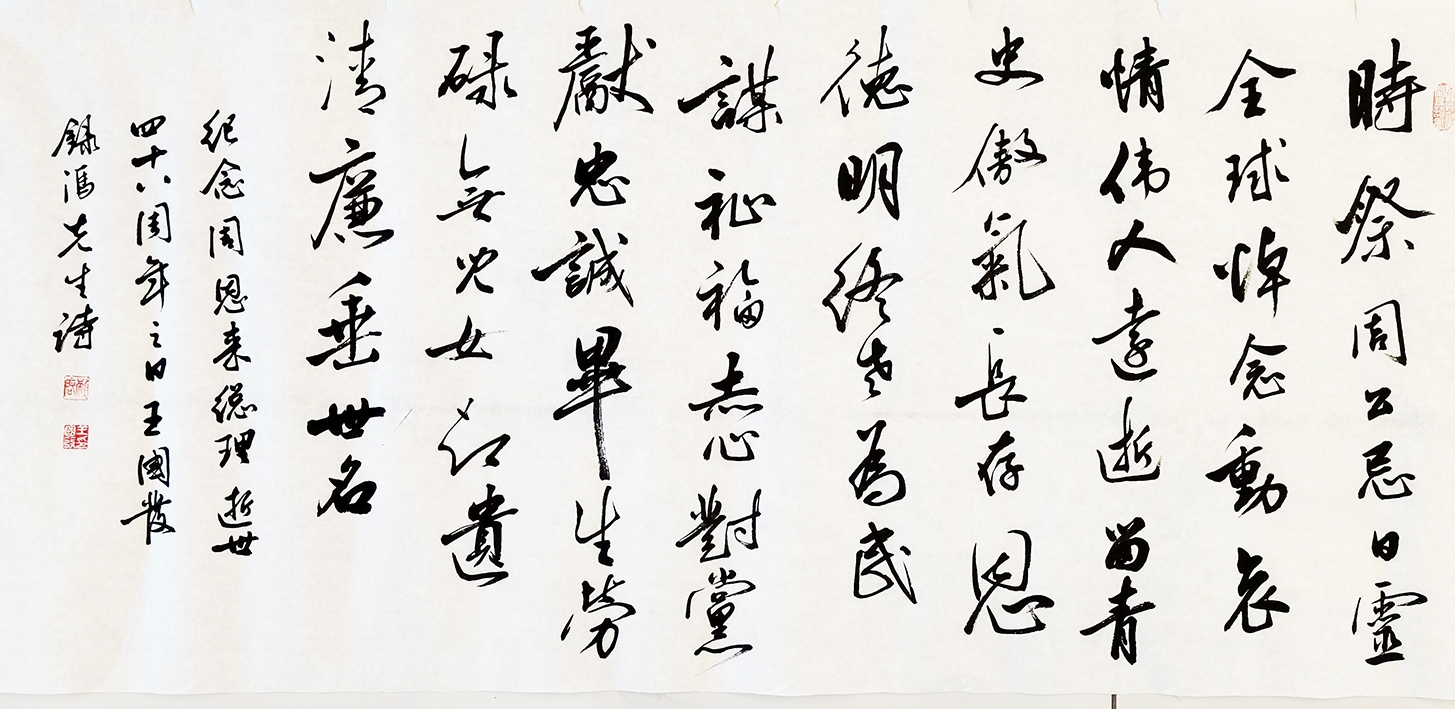 時祭周公忌日靈
全球悼念動哀
情伟人遠逝留青
史傲氣長存恩
德明終老為民
謀祉福赤心對黨
獻忠誠畢生勞
碌無兒女卻遺
清廉垂世名
紀念周恩来総理逝世
四十八周年之日王國發
錄馮先生詩